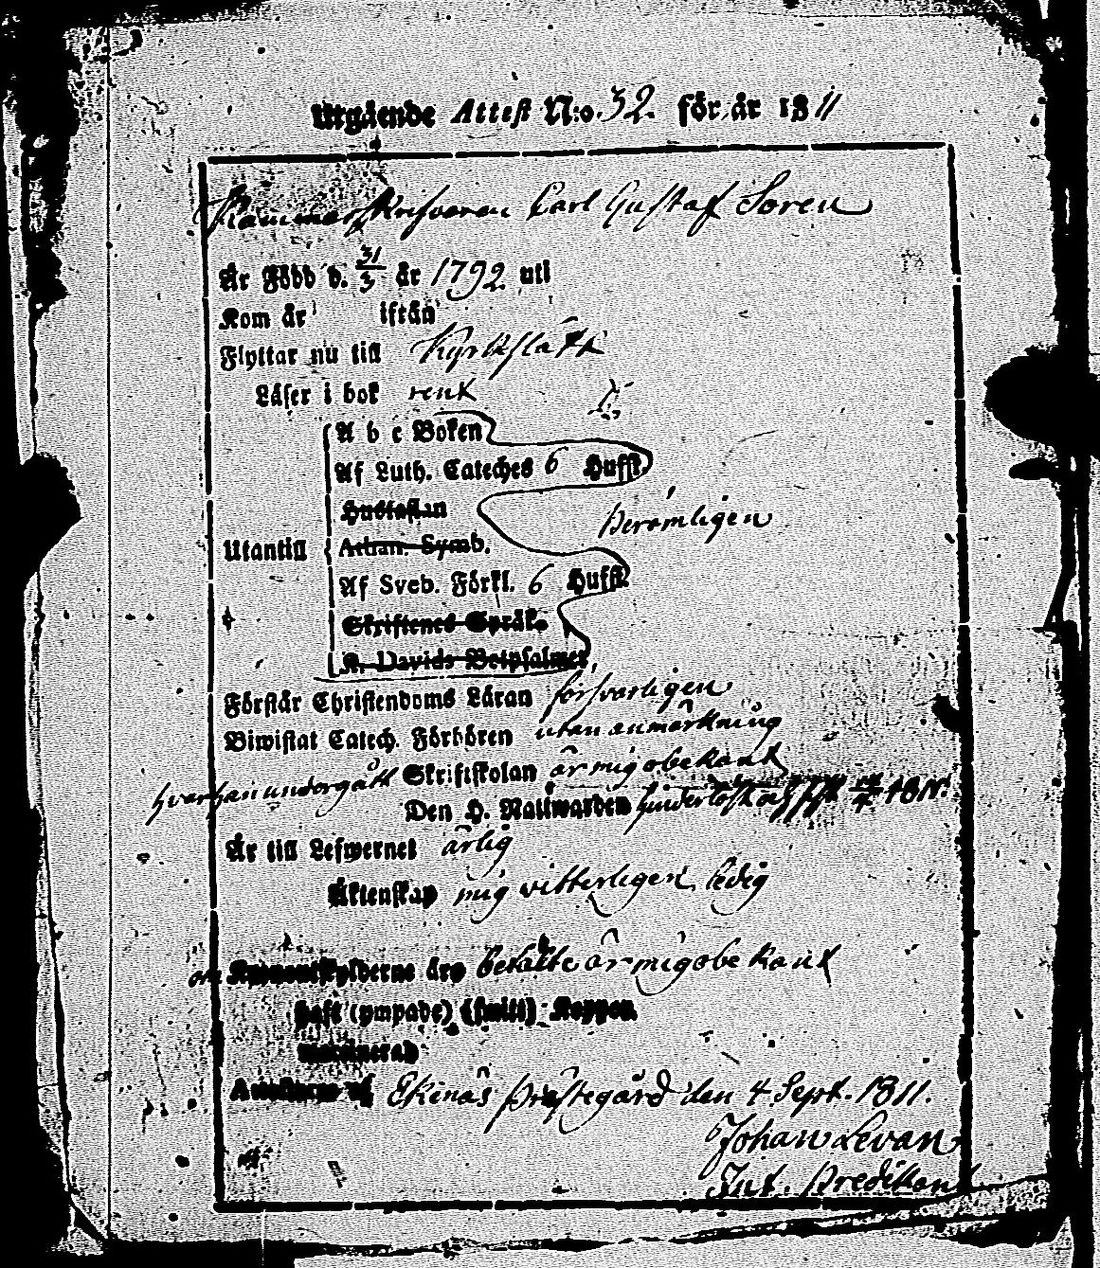 Utgående Attest N:o 32. för år 1811
Kammarskrifvaren Carl Gustaf Soren
Är Född d. 31/3 år 1792 uti
Kom år ifrån
Flyttar nu till Kyrkslätt
Läser i bok rent
A b c Boken
Af Luth. Cateches 6 Hufst.
Hustaflan
Athan. Symb.
Berömligen
Utantill
Af Sveb. Förkl. 6 Hufst.
Skriftenes Språk.
K. Davids Botpsalmer,
Förstår Christendoms Läran försvarligen
Biwistat Catech. Förhören utan anmärkning
hvarhan undergått Skriftskolan är mig obekant
Den H. Nattwarden 1811.
Är till Lefwernet ärlig
Äktenskap mig vitterligen ledig
om äro betalte är mig obekant
haft (ympade) Koppor
Ekenäs Prästegård den 4 Sept. 1811.
Johan Levan
Predikant